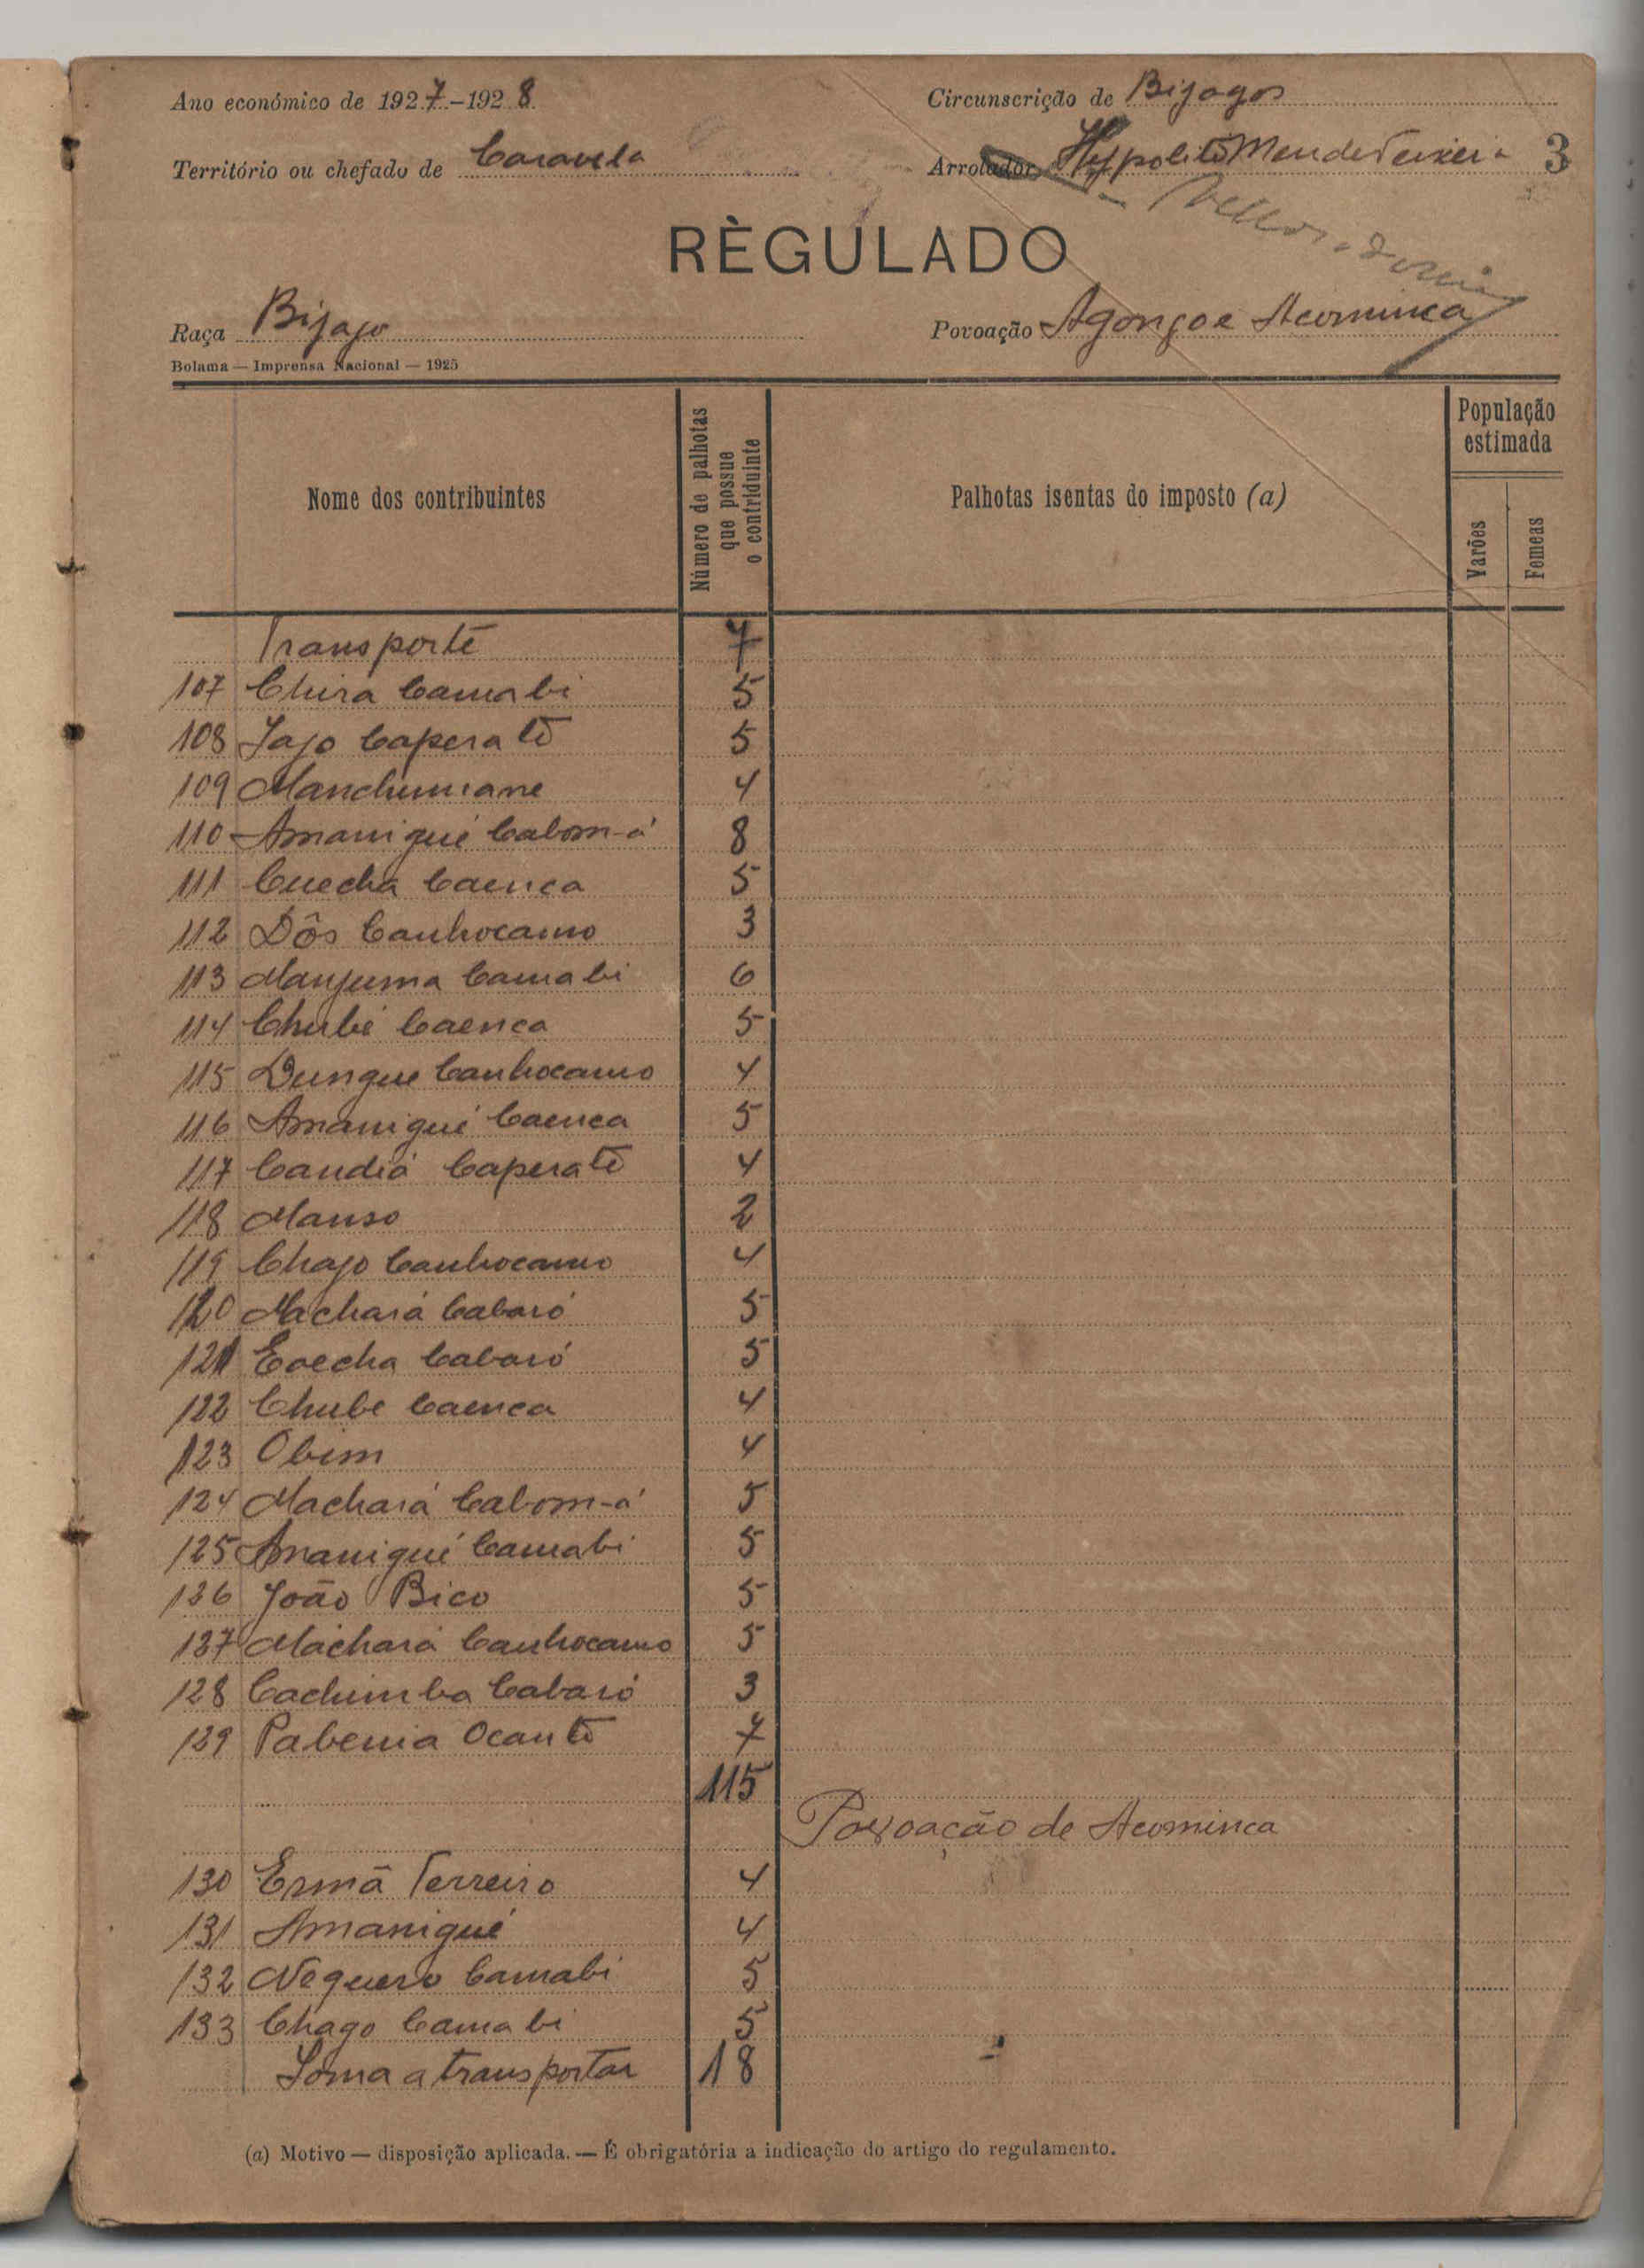 Ano económico de 1927-1928
Circunscrição de Bijagos
Território ou chefado de Caravela
Arrolador Hyppolito Mendes Teixeira 3
RÈGULADO
Raça Bijago
Povoação Agongo e Acominca
Bolama — Imprensa Nacional — 1925
Nome dos contribuintes
Número de palhotas que possue o contriduinte
Palhotas isentas do imposto (a)
População estimada
Varões
Femeas
Transporte 7
107 Chira Camabi 5
108 Jajo Caperatê 5
109 Manchumane 4
110 Amanigué Cabom-á 8
111 Cuecha Caenca 5
112 Dôs Canhocamo 3
113 Manjuma Camabi 6
114 Chubé Caenca 5
115 Dungue Canhocamo 4
116 Amanigué Caenca 5
117 Candiá Caperatê 4
118 Manso 2
119 Chajo Canhocamo 4
120 Machará Cabaró 5
121 Eoecha Cabaró 5
122 Chube Caenca 4
123 Obim 4
124 Machará Cabom-á 5
125 Amanigué Camabi 5
126 João Bico 5
127 Machará Canhocamo 5
128 Cachimba Cabaró 3
129 Pabenia Ocantê 7
115
Povoação de Acominca
130 Ermã Terreiro 4
131 Amanigué 4
132 Nequero Camabi 5
133 Chago Camabi 5
Soma a transportar 18
(a) Motivo — disposição aplicada. — É obrigatória a indicação do artigo do regulamento.